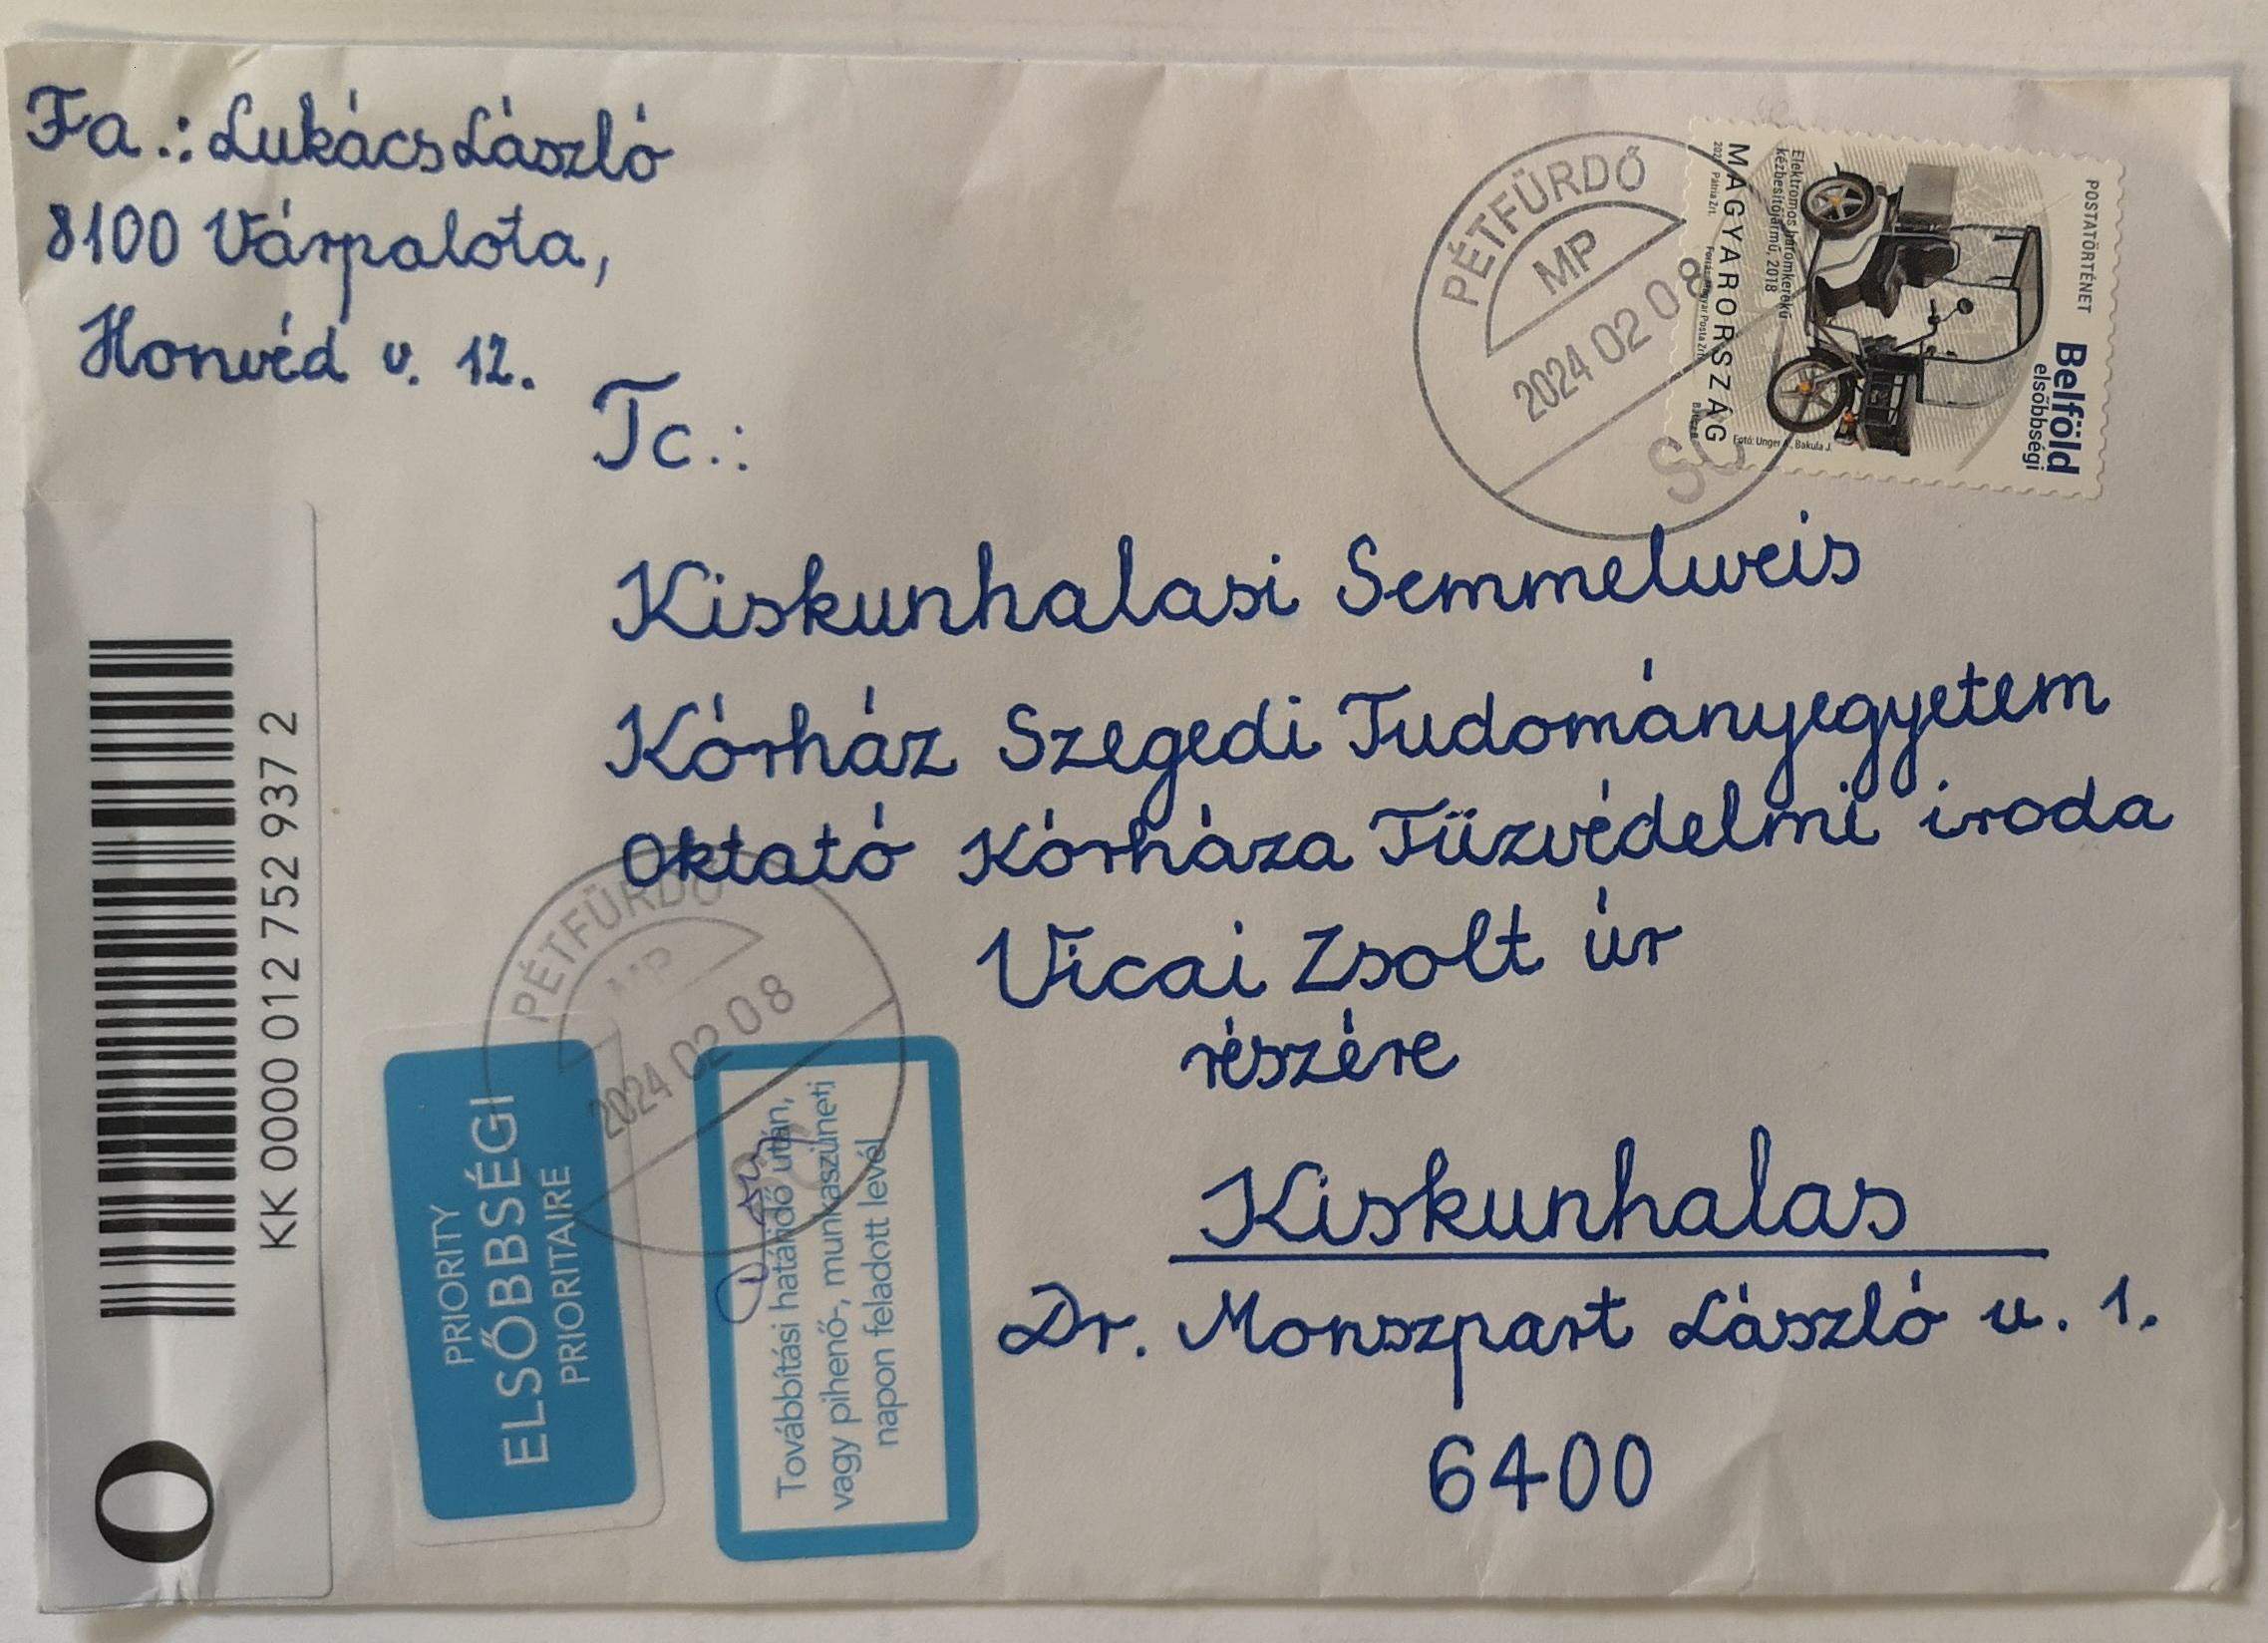 Fa.: Lukács László
8100 Várpalota,
Honvéd u. 12.
Tc.:
Kiskunhalasi Semmelweis
Kórház Szegedi Tudományegyetem
Oktató Kórháza Tüzvédelmi iroda
Vicai Zsolt úr
részére
Kiskunhalas
Dr. Monszpart László u. 1.
6400
PÉTFÜRDŐ
MP
2024 02 08
POSTATÖRTÉNET
Belföld
elsőbbségi
Elektromos háromkerekű
kézbesítőjármű, 2018
MAGYARORSZÁG
Fotó: Unger Bakula J.
KK 0000 012 752 937 2
O
PRIORITY
ELSŐBBSÉGI
PRIORITAIRE
Továbbítási határidő után,
vagy pihenő-, munkaszüneti
napon feladott levél
PÉTFÜRDŐ
MP
2024 02 08